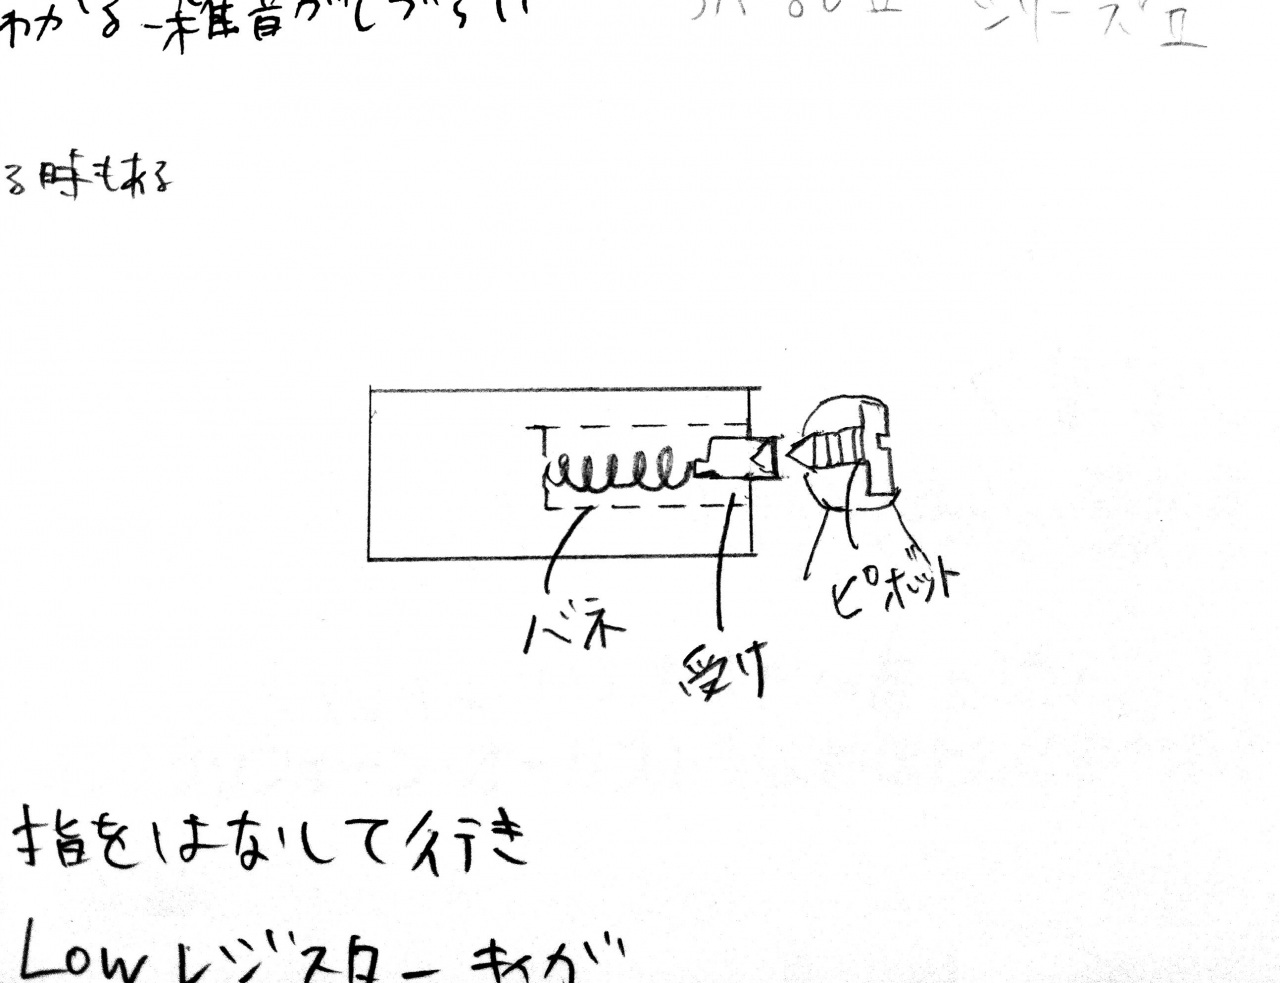 わかる 雑音がしづらい
シリーズⅡ
る時もある
バネ
受け
ピボット
指をはなして行き
Lowレジスターキィが